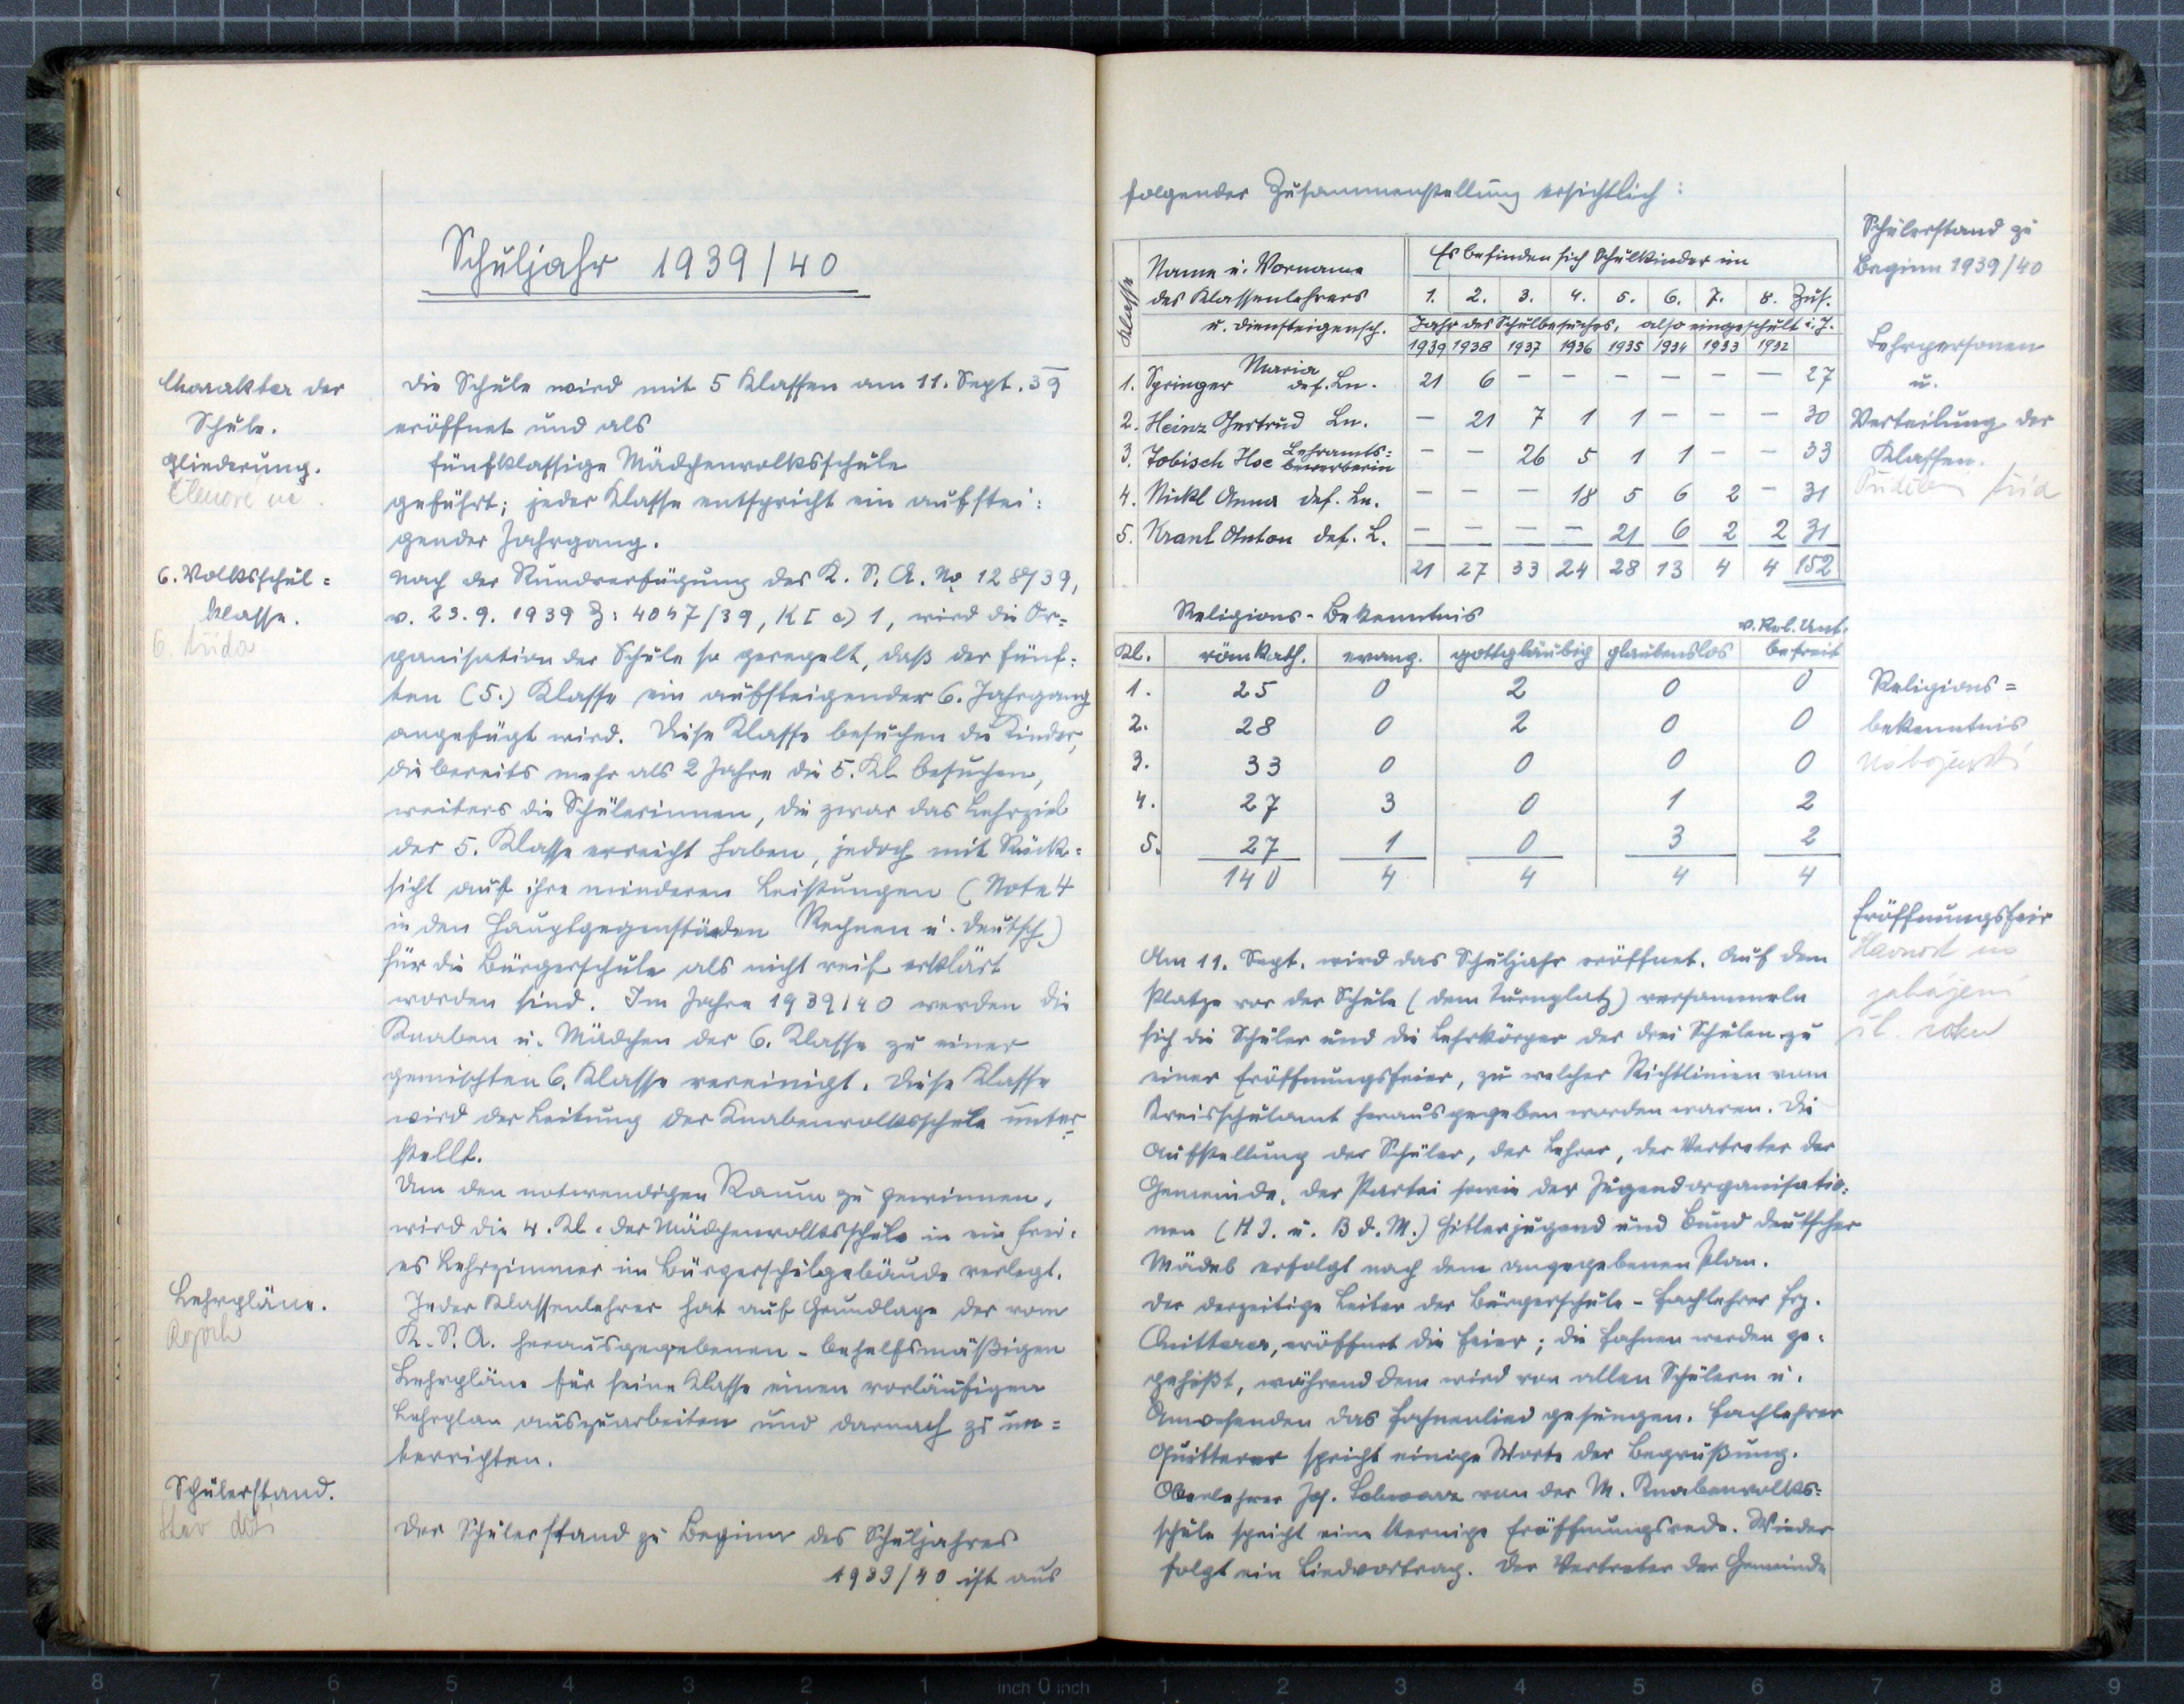 Schuljahr 1939/40
Charakter der
Schule.
Gliederung.
Členění
Die Schule wird mit 5 Klassen am 11. Sept. 39
eröffnet und als
fünfklassige Mädchenvolksschule
geführt; jeder Klasse entspricht ein aufstei:
gender Jahrgang.
6. Volksschul=
klasse.
6. třída
Nach der Rundverfügung des K. S. A. No 128/39,
v. 23.9.1939 Z: 4047/39, K I a) 1, wird die Or=
ganisation der Schule so geregelt, daß der fünf:
ten (5.) Klasse ein aufsteigender 6. Jahrgang
angefügt wird. Diese Klasse besuchen die Kinder,
die bereits mehr als 2 Jahre die 5. Kl. besuchen,
weiters die Schülerinnen, die zwar das Lehrziel
der 5. Klasse erreicht haben, jedoch mit Rück:
sicht auf ihre minderen Leistungen (Note 4
in den Hauptgegenständen Rechnen u. Deutsch)
für die Bürgerschule als nicht reif erklärt
worden sind. Im Jahre 1939/40 werden die
Knaben u. Mädchen der 6. Klasse zu einer
gemischten 6. Klasse vereinigt. Diese Klasse
wird der Leitung der Knabenvolksschule unter=
stellt.
Um den notwendigen Raum zu gewinnen,
wird die 4. Kl. der Mädchenvolksschule in ein frei:
es Lehrzimmer im Bürgerschulgebäude verlegt.
Lehrpläne.
Jeder Klassenlehrer hat auf Grundlage der vom
K. S. A. herausgegebenen - behelfsmäßigen
Lehrpläne für seine Klasse einen vorläufigen
Lehrplan auszuarbeiten und darnach zu un=
terrichten.
Schülerstand.
Stav dětí
Der Schülerstand zu Beginn des Schuljahres
1939/40 ist aus
folgender Zusammenstellung ersichtlich:
Schülerstand zu
Beginn 1939/40
Lehrpersonen
u.
Verteilung der
Klassen.
Přidělení tříd
Klasse
Name u. Vorname
des Klassenlehrers
u. Diensteigensch.
Es befinden sich Schulkinder im
1. 2. 3. 4. 5. 6. 7. 8. Zus.
Jahr des Schulbesuches, also eingeschult i. J.
1939 1938 1937 1936 1935 1934 1933 1932
1. Springer Maria def. Ln. 21 6 - - - - - - 27
2. Heinz Gertrud Ln. - 21 7 1 1 - - - 30
3. Tobisch Ilse Lehramts=bewerberin - - 26 5 1 1 - - 33
4. Nickl Anna def. Ln. - - - 18 5 6 2 - 31
5. Kraml Anton def. L. - - - - 21 6 2 2 31
21 27 33 24 28 13 4 4 152
Religions-Bekenntnis
Kl. röm kath. evang. gottgläubig glaubenslos v. Rel. Unt. befreit
1. 25 0 2 0 0
2. 28 0 2 0 0
3. 33 0 0 0 0
4. 27 3 0 1 2
5. 27 1 0 3 2
140 4 4 4 4
Religions=
bekenntnis
Náboženství
Eröffnungsfeier
zahájení
šk. roku
Am 11. Sept. wird das Schuljahr eröffnet. Auf dem
Platze vor der Schule (dem Turnplatz) versammeln
sich die Schüler und die Lehrkörper der drei Schulen zu
einer Eröffnungsfeier, zu welcher Richtlinien vom
Kreisschulamt herausgegeben worden waren. Die
Aufstellung der Schüler, der Lehrer, der Vertreter der
Gemeinde, der Partei sowie der Jugendorganisatio:
nen (H J. u. B d. M.) Hitlerjugend und Bund deutscher
Mädel erfolgt nach dem angegebenen Plan.
Der derzeitige Leiter der Bürgerschule - Fachlehrer Frz.
Quitterer, eröffnet die Feier; die Fahnen werden ge:
gehißt, während dem wird von allen Schülern u.
Anwesenden das Fahnenlied gesungen. Fachlehrer
Quitterer spricht einige Worte der Begrüßung.
Oberlehrer Jos. Schwarz von der M. Knabenvolks=
schule spricht eine kernige Eröffnungsrede. Wieder
folgt ein Liedvortrag. Der Vertreter der Gemeinde
8 7 6 5 4 3 2 1 inch 0 inch 1 2 3 4 5 6 7 8 9